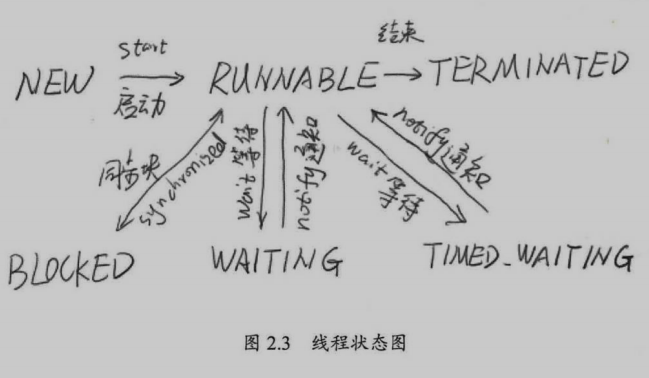 start 结束
NEW → RUNNABLE → TERMINATED
启动
同步块 synchronized wait 等待 notify 通知 wait 等待 notify 通知
BLOCKED WAITING TIMED_WAITING
图 2.3 线程状态图